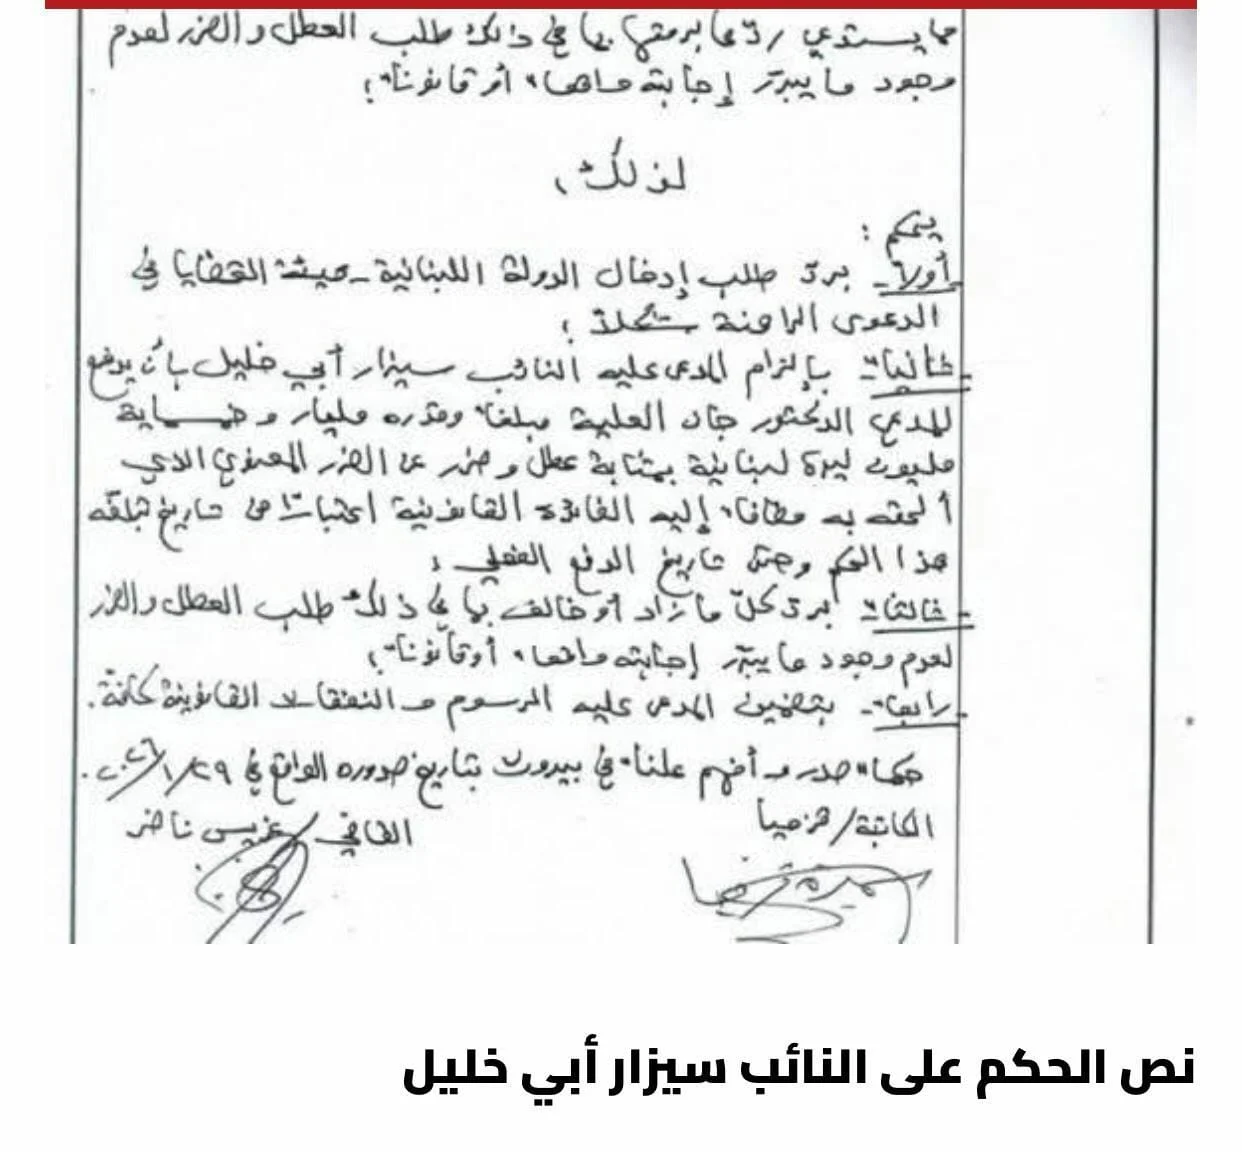 مما يستدعي ردّها برمتها بما في ذلك طلب العطل والضرر لعدم
وجود ما يبرّر إجابته واقعاً أو قانوناً؛
لذلك،
يحكم :
أولاً- بردّ طلب إدخال الدولة اللبنانية - هيئة القضايا في
الدعوى الراهنة شكلاً ؛
ثانياً- بإلزام المدعى عليه النائب سيزار أبي خليل بأن يدفع
للمدعي الدكتور جان العلية مبلغاً وقدره مليار وخمسماية
مليون ليرة لبنانية بمثابة عطل وضرر عن الضرر المعنوي الذي
ألحقه به مضافاً إليه الفائدة القانونية اعتباراً من تاريخ تبلغه
هذا الحكم وحتى تاريخ الدفع الفعلي ؛
ثالثاً- بردّ كلّ ما زاد أو خالف بما في ذلك طلب العطل والضرر
لعدم وجود ما يبرّر إجابته واقعاً أو قانوناً؛
رابعاً- بتضمين المدعى عليه الرسوم والنفقات القانونية كافة.
حكماً صدر وأفهم علناً في بيروت بتاريخ صدوره الواقع في ٢٩/١/٢٠٢٦.
الكاتبة/ القاضي/
نص الحكم على النائب سيزار أبي خليل